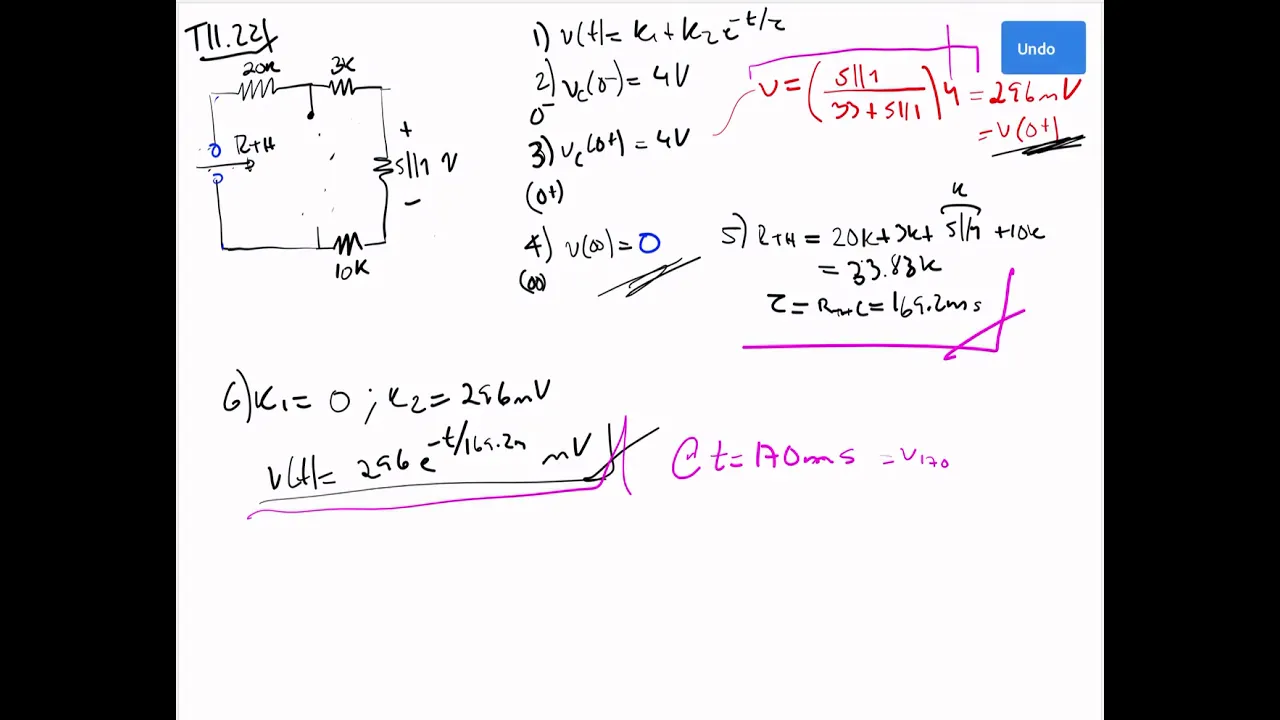 T11.22
20K
3K
RTH
+
5||1 V
-
10K
1) v(t) = K1 + K2 e^-t/τ
2) vc(0-) = 4V
0-
3) vc(0+) = 4V
(0+)
4) v(∞) = 0
(∞)
Undo
v = (5||1 / 33+5||1) 4 = 296mV
= v(0+)
5) RTH = 20K + 3K + 5||1 K + 10K
= 33.83K
τ = RTH C = 169.2ms
6) K1 = 0 ; K2 = 296mV
v(t) = 296 e^-t/169.2m mV
@ t = 170ms = v170